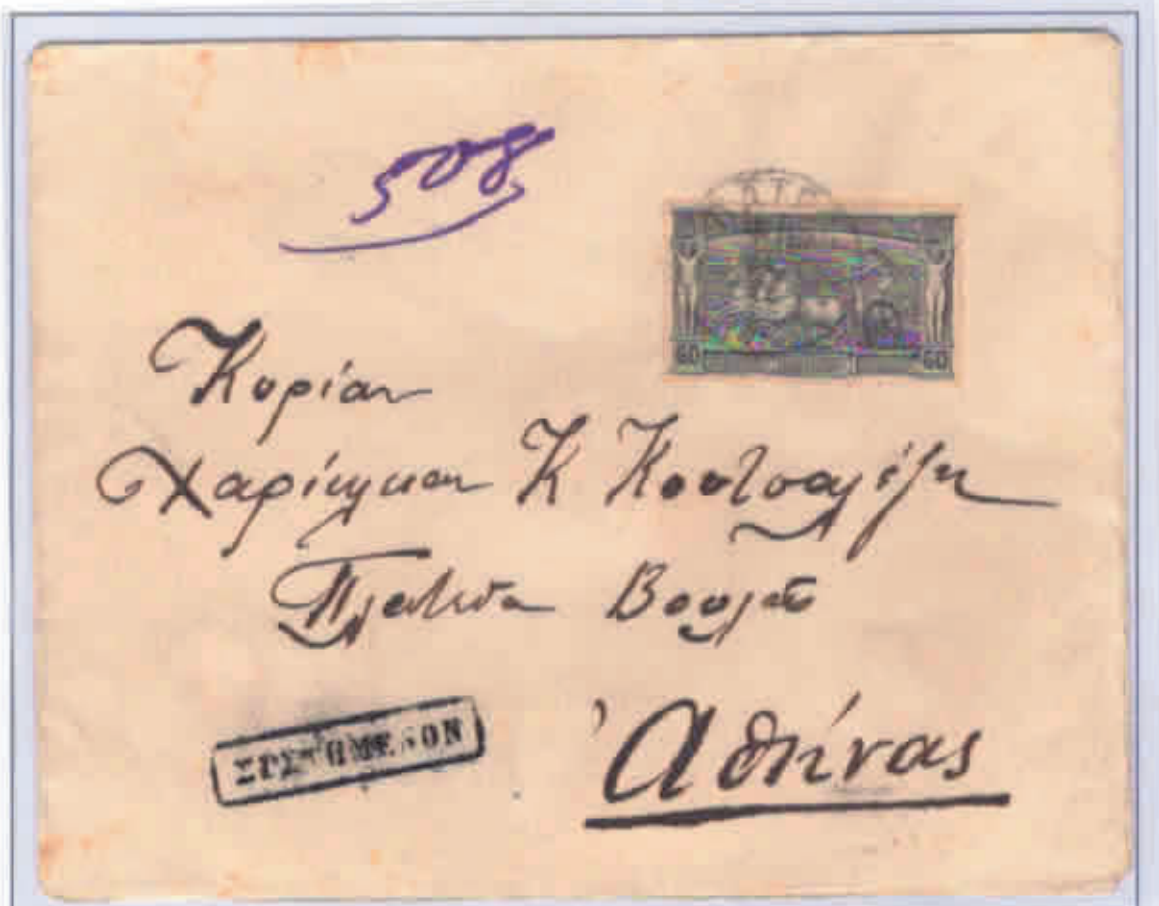 508
60 60
Κυρίαν
Χαρίκλειαν Κ
Πλατεῖα Βουλῆς
ΣΥΣΤΗΜΕΝΟΝ
Ἀθήνας